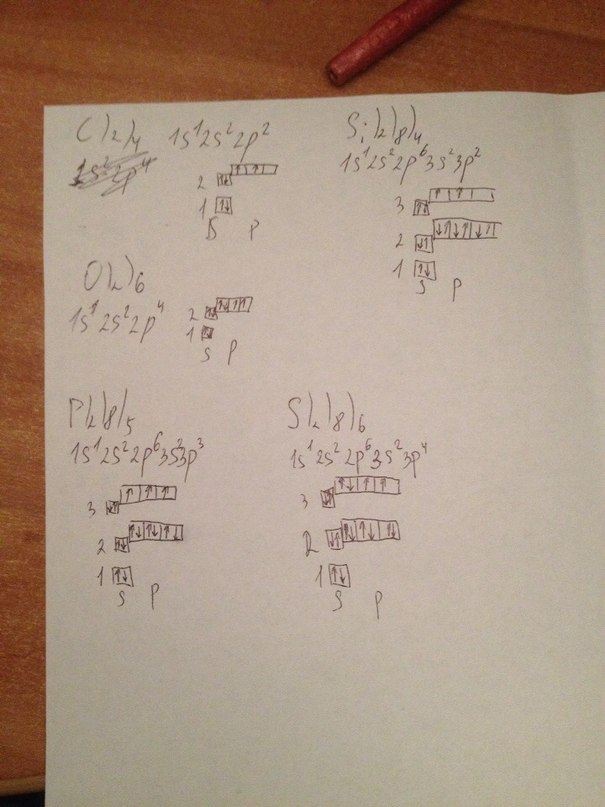 C )2)4
1s¹2s²2p²
2
1
S P
Si )2)8)4
1s¹2s²2p⁶3s²3p²
3
2
1
S P
O )2)6
1s¹2s²2p⁴
2
1
S P
P )2)8)5
1s¹2s²2p⁶3s²3p³
3
2
1
S P
S )2)8)6
1s¹2s²2p⁶3s²3p⁴
3
2
1
S P